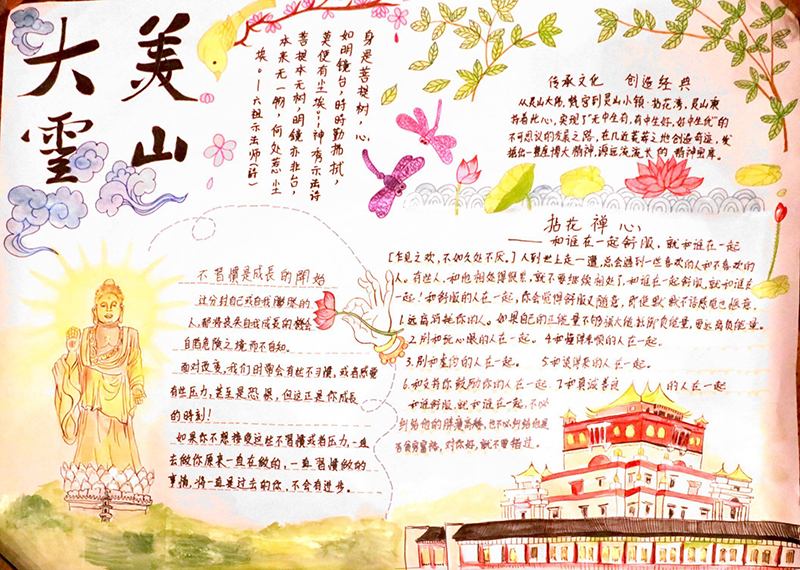 大美
靈山
身是菩提树，心
如明镜台，时时勤拂拭，
莫使有尘埃。——神秀示法诗
菩提本无树，明镜亦非台，
本来无一物，何处惹尘
埃。——六祖示法师(诗)
传承文化 创造经典
从灵山大佛，梵宫到灵山小镇·拈花湾，灵山秉
持着此心，实现了“无中生有，有中生好，好中生优”的
不可思议的发展之路。在
源远流长的精神宝库。
拈花禅心
——和谁在一起舒服，就和谁在一起
【乍见之欢，不如久处不厌。】人到世上走一遭，总会遇到一些喜欢的人和不喜欢的
人。有些人，和他相处得很累，就不要继续相处了，和谁在一起舒服，就和谁在
一起！和舒服的人在一起，你会觉得舒服又随意，即使默默不语感觉也惬意。
1.远离消耗你的人。如果自己的正能量不够强大能抵御负能量，要远离负能量。
2.别和玩心眼的人在一起。 4.和懂得感恩的人在一起。
3.别和虚伪的人在一起。 5.和谈得来的人在一起。
6.和支持你鼓励你的人在一起。 7.和真诚善良的人在一起
和谁舒服，就和谁在一起，不以
对你好，就不要错过。
不習慣是成長的開始
过分对自己或自我膨胀的
人，都将丧失自我成长的机会
自陷危险之境而不自知。
面对改变，我们时常会有些不习惯，或者感觉
有些压力，甚至是恐惧，但这正是你成長
的时刻！
如果你不想接受这些不習慣或者压力，一直
去做你原来一直在做的，一直習慣做的
事情，将一直是过去的你，不会有进步。